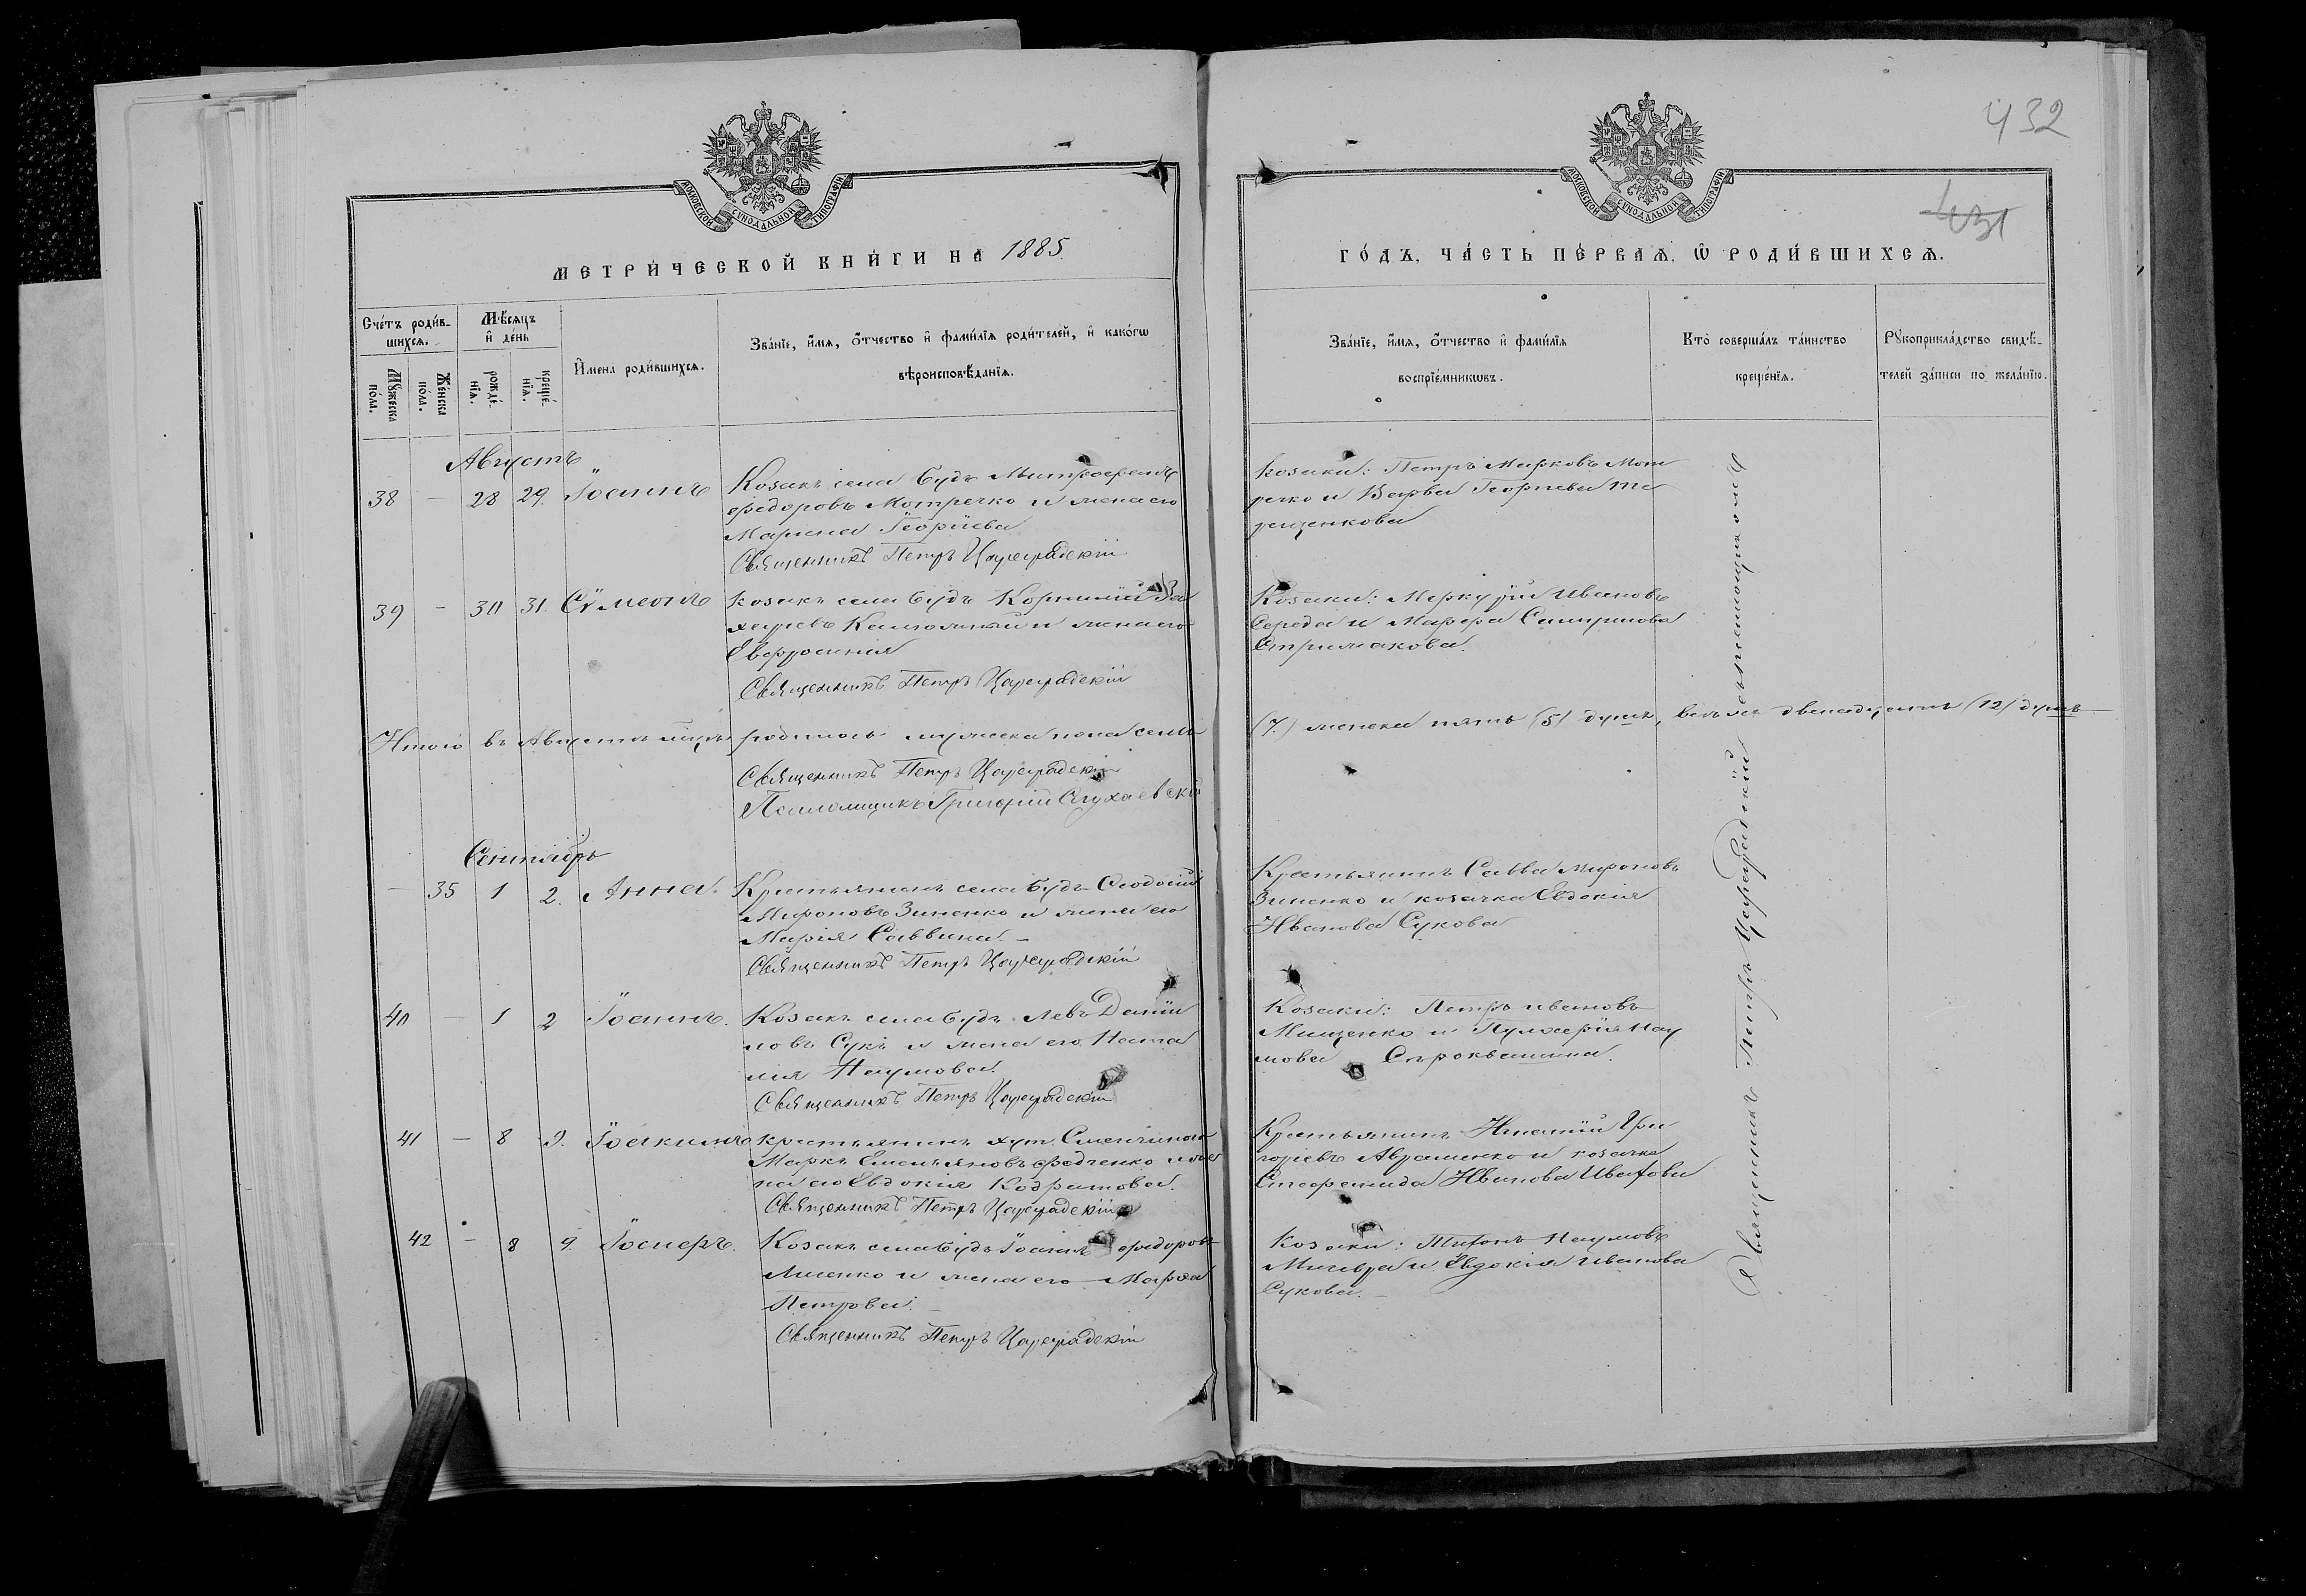 432
431
МОСКОВСКОЙ СѴНОДАЛЬНОЙ ТИПОГРАФІИ
МОСКОВСКОЙ СѴНОДАЛЬНОЙ ТИПОГРАФІИ
МЕТРИ́ЧЕСКОЙ КНИ́ГИ НА 1885.
ГО́ДЪ, ЧА́СТЬ ПЕ́РВАѦ, Ѡ҆ РОДИ́ВШИХСѦ.
Сче́тъ роди́в-
шихсѧ.
Мѣ́сѧцъ
и҆ де́нь
Мꙋ́жеска
по́ла.
Же́нска
по́ла.
рожде́-
нїѧ.
креще́-
нїѧ.
И҆мена̀ роди́вшихсѧ.
Зва́нїе, и҆́мѧ, ѻ҆́тчество и҆ фами́лїѧ роди́телей, и҆ како́гѡ
вѣроисповѣ́данїѧ.
Зва́нїе, и҆́мѧ, ѻ҆́тчество и҆ фами́лїѧ
воспрїе́мникѡвъ.
Кто̀ соверша́лъ та́инство
креще́нїѧ.
Рꙋкоприкла́дство свидѣ́-
телей за́писи по жела́нїю.
Августъ
38 — 28 29. Іоаннъ
Козакъ села Будъ Митрофанъ
Федоровъ Мотречко и жена его
Марина Георгіева
Священникъ Петръ Цареградскій
Козаки: Петръ Марковъ Мот
речко и Варвара Георгіева Те
рещенкова
39 — 30 31. Сѵмеонъ
Козакъ села Будъ Корнилій За
харіевъ и жена его
Евфросинія
Священникъ Петръ Цареградскій
Козаки: Меркурій Ивановъ
Середа и Марфа Спиридонова
Стрижакова.
Итого въ Августѣ мцѣ родилось мужеска пола семь
(7.) женска пять (5) душъ, всѣхъ двенадцать (12) душъ
Священникъ Петръ Цареградскій
Псаломщикъ Григорій Слухаевскій
Сентябрь
— 35 1 2. Анна.
Крестьянинъ села Будъ Феодосій
Мироновъ Зиненко и жена его
Марія Саввина. —
Священникъ Петръ Цареградскій
Крестьянинъ Савва Мироновъ
Зиненко и козачка Евдокія
Иванова Сукова
40 — 1 2 Іоаннъ.
Козакъ села Будъ Левъ Даніи
ловъ Сукъ и жена его Ната
лія Наумова.
Священникъ Петръ Цареградскій
Козаки: Петръ Ивановъ
Мищенко и Пулхерія Нау
мова Сыроквашина.
41 — 8 9. Іоакимъ
Крестьянинъ хут.
Маркъ Емельяновъ Федченко и же
на его Евдокія Кодратова.
Священникъ Петръ Цареградскій
Крестьянинъ Игнатій Гри
горіевъ Авраменко и козачка
Стефанида Иванова
42 — 8 9. Іосифъ.
Козакъ села Будъ Іоаннъ Федоровъ
Лисенко и жена его Марфа
Петрова. —
Священникъ Петръ Цареградскій
Козаки: Титъ Наумовъ
и Евдокія Иванова
Сукова. —
Священникъ Петръ Цареградскій